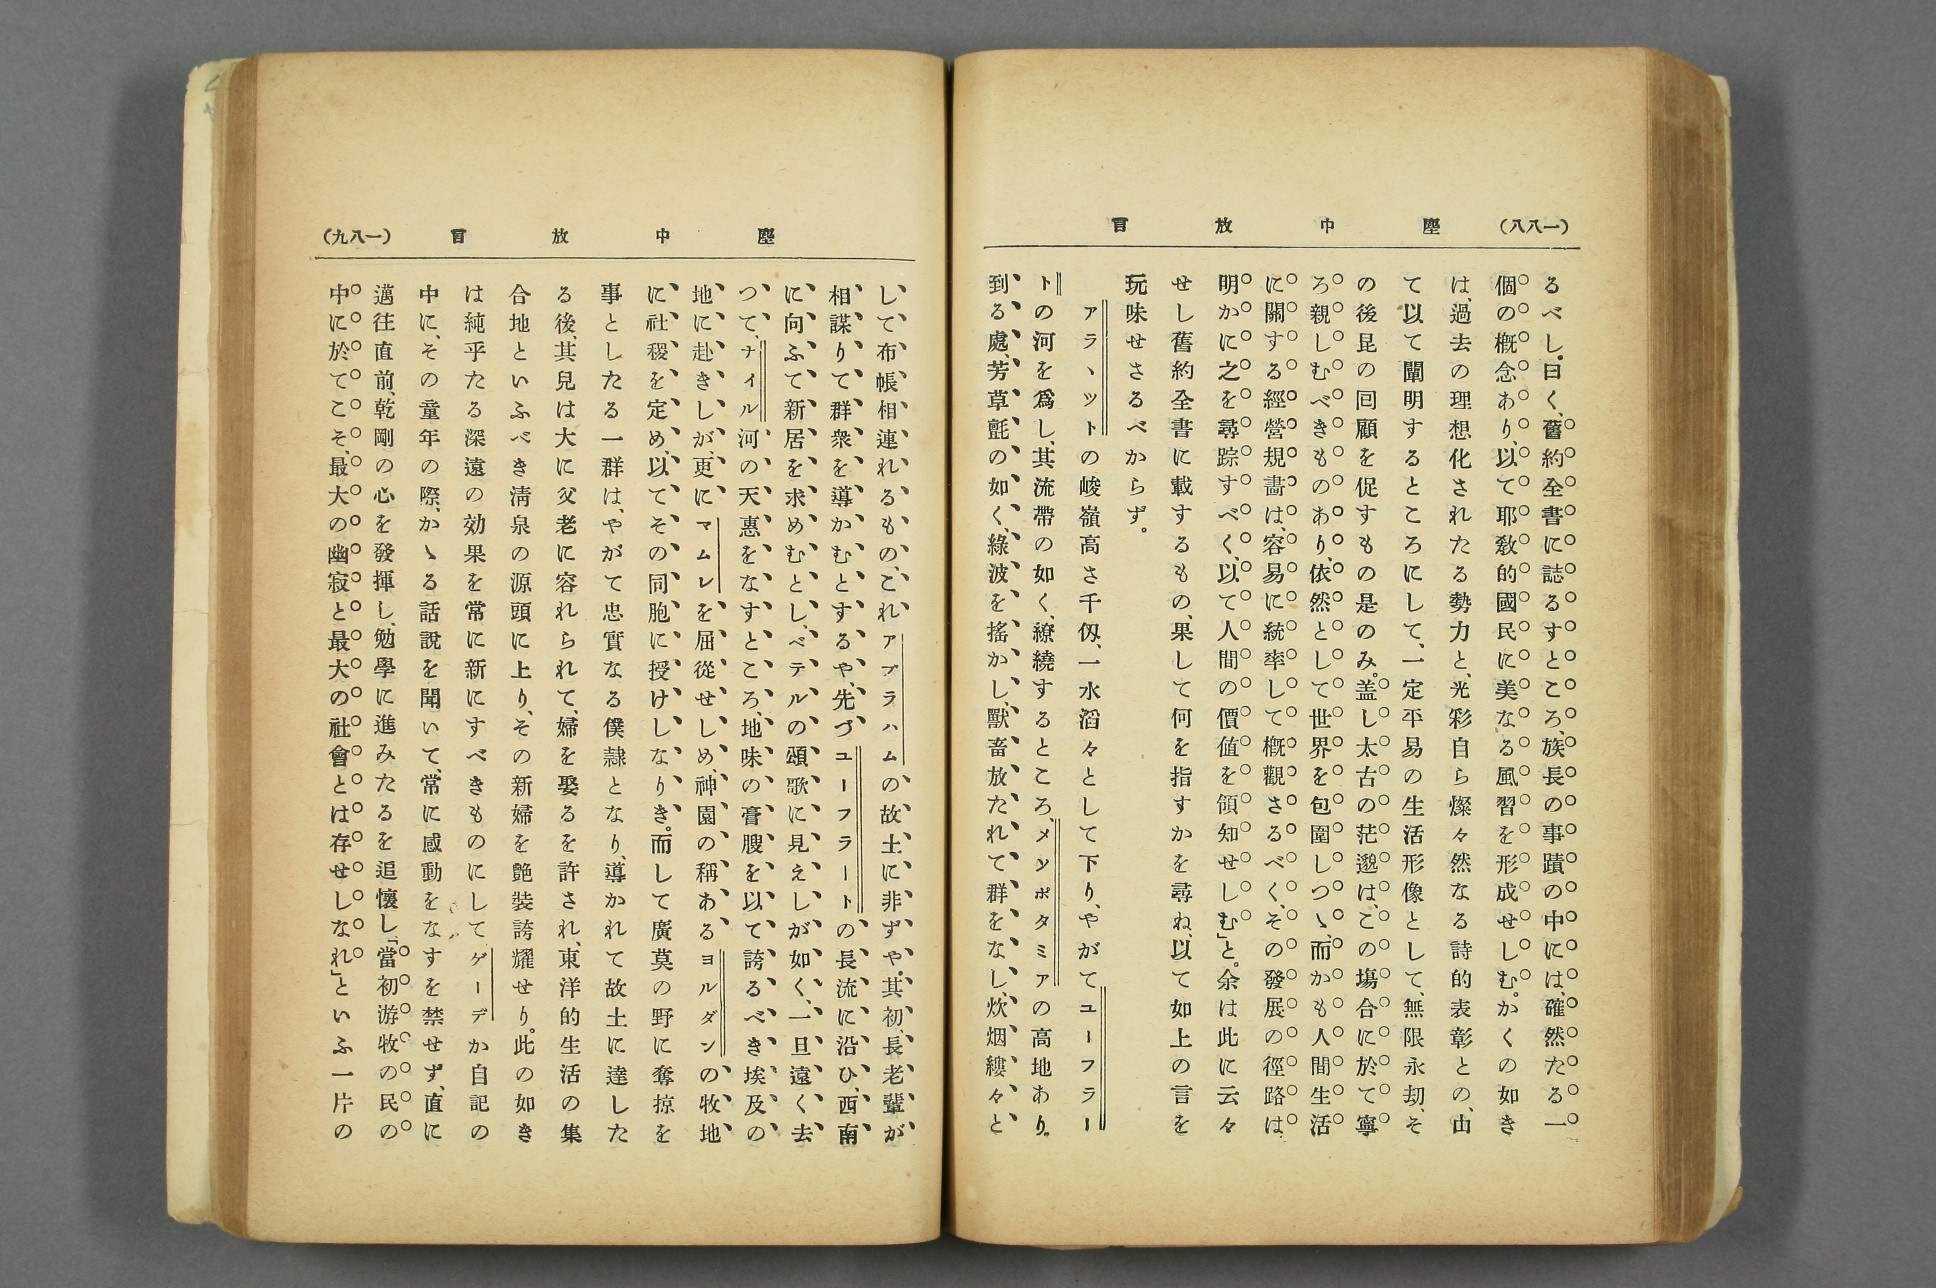 (一八八) 塵中放言
るべし。曰く、舊約全書に誌るすところ、族長の事蹟の中には、確然たる一
個の概念あり、以て耶敎的國民に美なる風習を形成せしむ。かくの如き
は、過去の理想化されたる勢力と、光彩自ら燦々然なる詩的表彰との、由
て以て闡明するところにして、一定平易の生活形像として、無限永劫、そ
の後昆の囘顧を促すもの是のみ。盖し太古の茫邈は、この塲合に於て寧
ろ親しむべきものあり、依然として世界を包圍しつゝ、而かも人間生活
に關する經營規畵は、容易に統率して概觀さるべく、その發展の徑路は
明かに之を尋踪すべく、以て人間の價値を領知せしむ」と。余は此に云々
せし舊約全書に載するもの、果して何を指すかを尋ね、以て如上の言を
玩味せさるべからず。
アラヽットの峻嶺高さ千仭、一水滔々として下り、やがてユーフラー
トの河を爲し、其流帶の如く、繚繞するところ、メソポタミアの高地あり。
到る處、芳草氈の如く、綠波を搖かし、獸畜放たれて群をなし、炊烟縷々と
(一八九) 塵中放言
して布帳相連れるもの、これアブラハムの故土に非ずや。其初、長老輩が
相謀りて群衆を導かむとするや、先づユーフラートの長流に沿ひ、西南
に向ふて新居を求めむとし、ベテルの頌歌に見えしが如く、一旦遠く去
つて、ナイル河の天惠をなすところ、地味の膏腴を以て誇るべき埃及の
地に赴きしが、更にマムレを屈從せしめ、神園の稱あるヨルダンの牧地
に社稷を定め、以てその同胞に授けしなりき。而して廣莫の野に奪掠を
事としたる一群は、やがて忠實なる僕隷となり、導かれて故土に達した
る後、其兒は大に父老に容れられて、婦を娶るを許され、東洋的生活の集
合地といふべき淸泉の源頭に上り、その新婦を艶裝誇耀せり。此の如き
は純乎たる深遠の効果を常に新にすべきものにしてゲーデか自記の
中に、その童年の際、かゝる話說を聞いて、常に感動をなすを禁せず、直に
邁往直前、乾剛の心を發揮し、勉學に進みたるを追懷し、「當初游牧の民の
中に於てこそ、最大の幽寂と最大の社會とは存せしなれ」といふ一片の